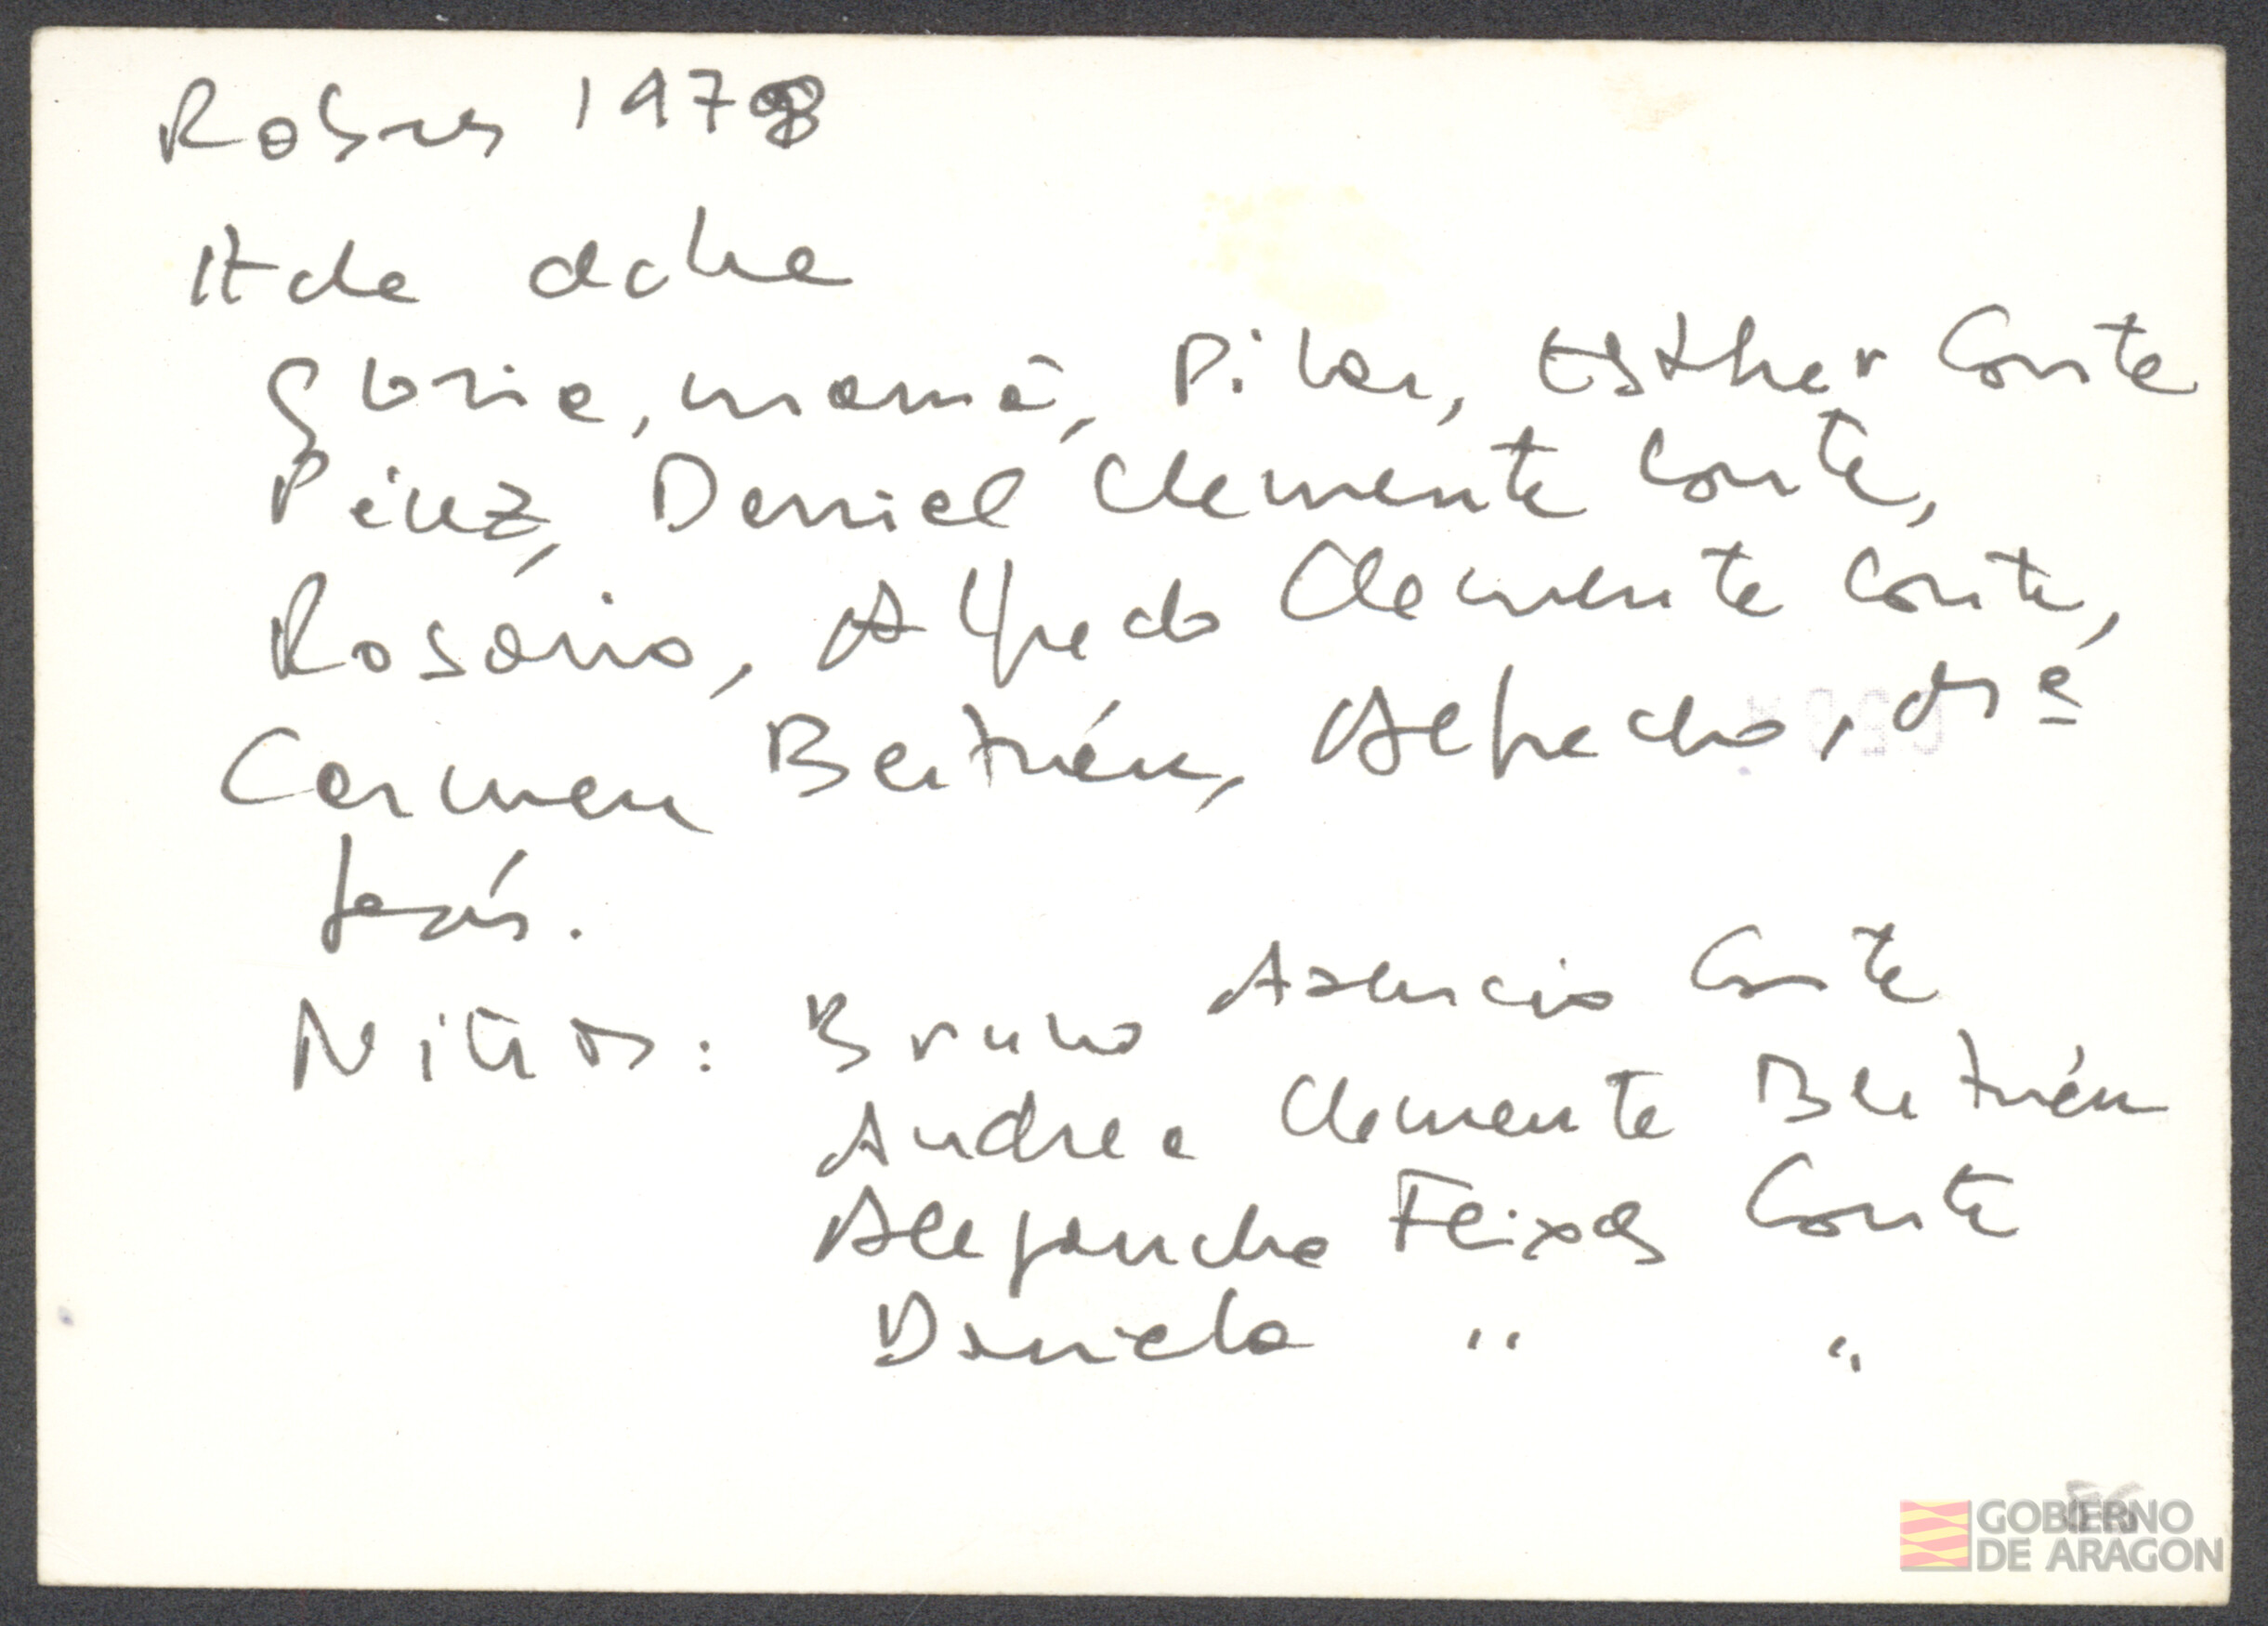 Robres 1978
Itda dcha
Gloria, mamá, Pilar, Esther Conte
Pérez, Daniel Clemente Conte,
Rosario, Alfredo Clemente Conte,
Carmen Beltrán, Alfredo, Mª
Jesús.
Niños: Bruno Asencio Conte
Andrea Clemente Beltrán
Alejandra Feixas Conte
Daniela " "
GOBIERNO
DE ARAGON